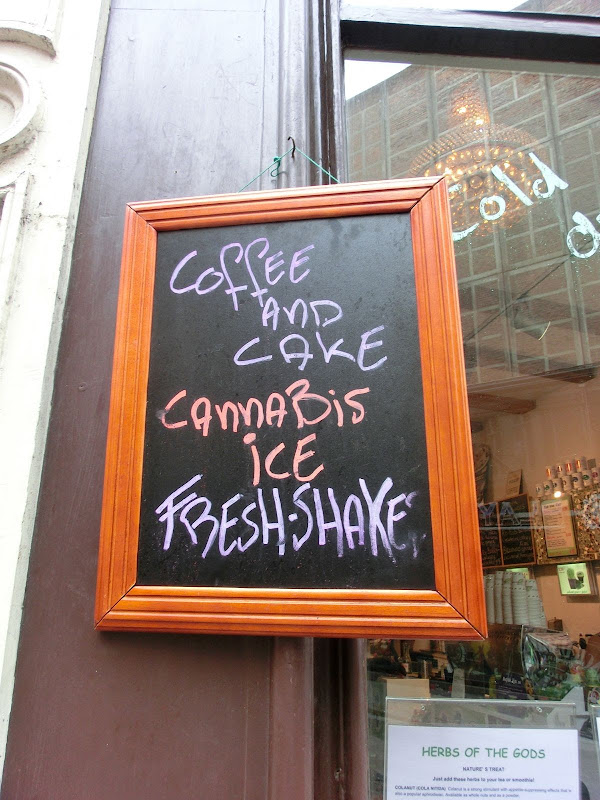 Coffee
AND
CAKE
CANNABis
iCE
FRESH-SHAKES
Cold
HERBS OF THE GODS
NATURE' S TREAT
Just add these herbs to your tea or smoothie!